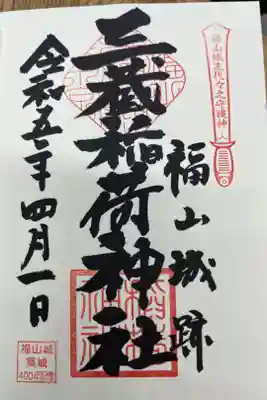 福山城主代々之守護神
福山城跡
三蔵稲荷神社
令和五年四月一日
福山城
築城